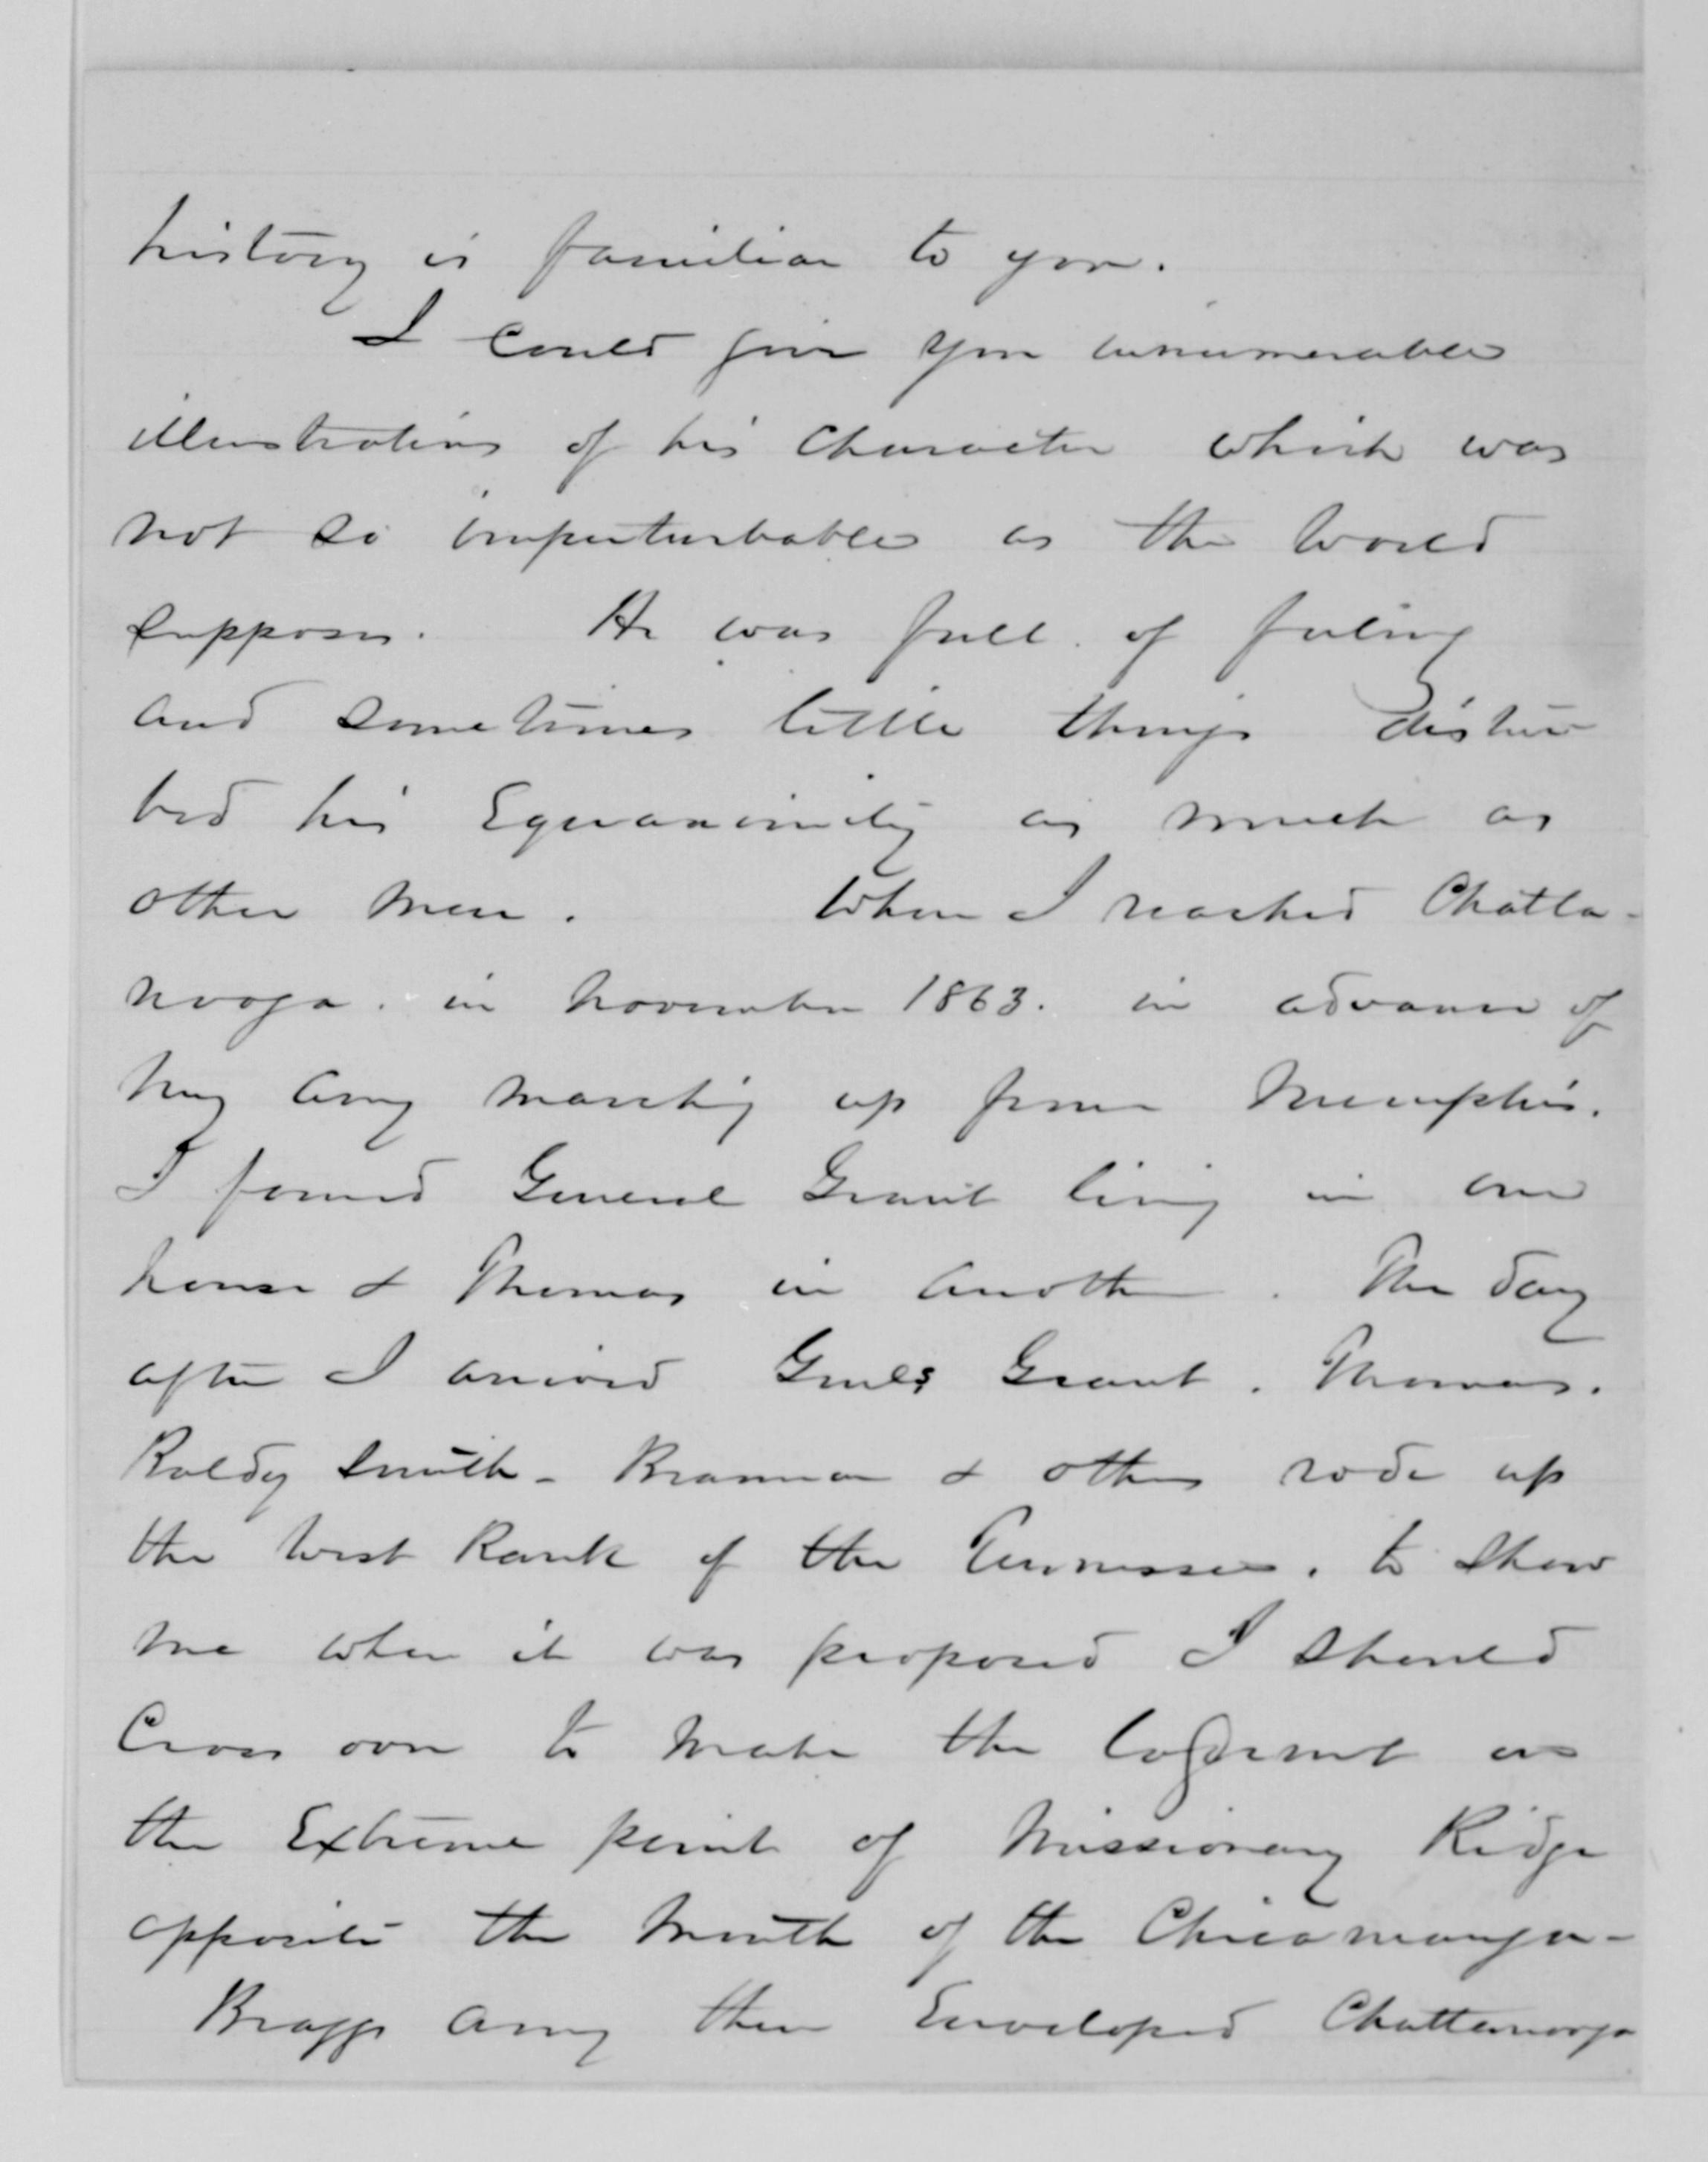 history is familiar to you.
I could give you innumerable
illustrations of his character which was
not so imperturbable as the world
supposes. He was full of feeling
and sometimes little things distur
bed his Equanimity as much as
other men. When I reached Chatta-
nooga. in November 1863. in advance of
my army marching up from Memphis.
I found General Grant living in one
house & Thomas in another. The day
after I arrived Genls Grant. Thomas.
Baldy Smith - Brannan & others rode up
the West Bank of the Tennessee. to show
me where it was proposed I should
Cross over to make the lodgement on
the Extreme point of Missionary Ridge
opposite the mouth of the Chicamauga -
Braggs army then Enveloped Chattanooga